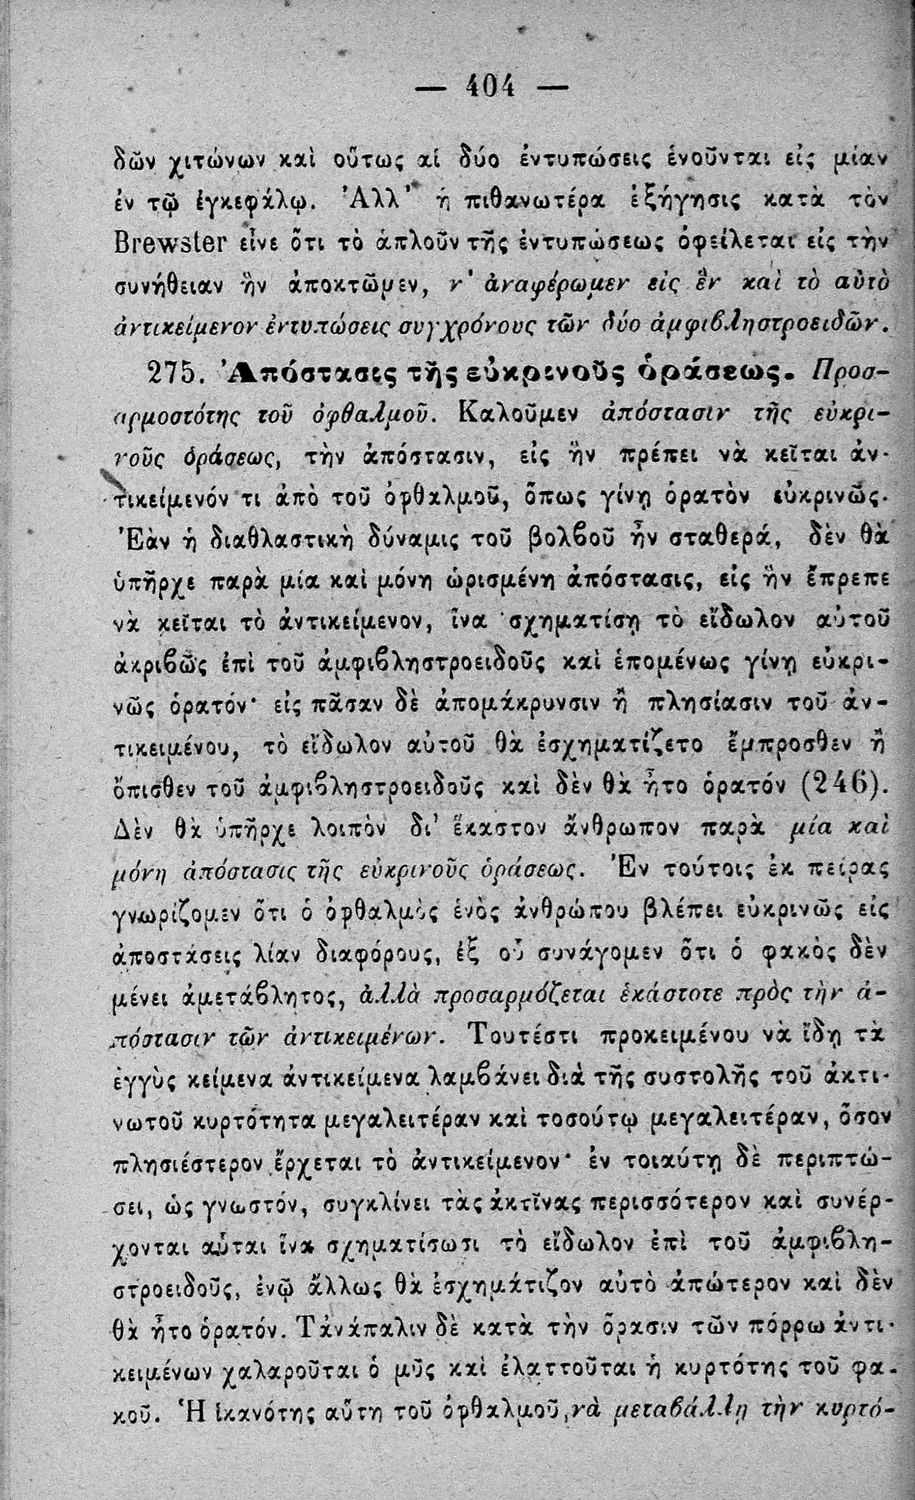 — 404 —
δῶν χιτώνων καὶ οὕτως αἱ δύο ἐντυπώσεις ἑνοῦνται εἰς μίαν
ἐν τῷ ἐγκεφάλῳ. Ἀλλ' ἡ πιθανωτέρα ἐξήγησις κατὰ τὸν
Brewster εἶνε ὅτι τὸ ἁπλοῦν τῆς ἐντυπώσεως ὀφείλεται εἰς τὴν
συνήθειαν ἣν ἀποκτῶμεν, ν' ἀναφέρωμεν εἰς ἓν καὶ τὸ αὐτὸ
ἀντικείμενον ἐντυπώσεις συγχρόνους τῶν δύο ἀμφιβληστροειδῶν.
275. Ἀπόστασις τῆς εὐκρινοῦς ὁράσεως. Προσ-
αρμοστότης τοῦ ὀφθαλμοῦ. Καλοῦμεν ἀπόστασιν τῆς εὐκρι-
νοῦς ὁράσεως, τὴν ἀπόστασιν, εἰς ἣν πρέπει νὰ κεῖται ἀν-
τικείμενόν τι ἀπὸ τοῦ ὀφθαλμοῦ, ὅπως γίνῃ ὁρατὸν εὐκρινῶς.
Ἐὰν ἡ διαθλαστικὴ δύναμις τοῦ βολβοῦ ἦν σταθερά, δὲν θὰ
ὑπῆρχε παρὰ μία καὶ μόνη ὡρισμένη ἀπόστασις, εἰς ἣν ἔπρεπε
νὰ κεῖται τὸ ἀντικείμενον, ἵνα σχηματίσῃ τὸ εἴδωλον αὐτοῦ
ἀκριβῶς ἐπὶ τοῦ ἀμφιβληστροειδοῦς καὶ ἑπομένως γίνῃ εὐκρι-
νῶς ὁρατόν· εἰς πᾶσαν δὲ ἀπομάκρυνσιν ἢ πλησίασιν τοῦ ἀν-
τικειμένου, τὸ εἴδωλον αὐτοῦ θὰ ἐσχηματίζετο ἔμπροσθεν ἢ
ὄπισθεν τοῦ ἀμφιβληστροειδοῦς καὶ δὲν θὰ ἦτο ὁρατόν (246).
Δὲν θὰ ὑπῆρχε λοιπὸν δι' ἕκαστον ἄνθρωπον παρὰ μία καὶ
μόνη ἀπόστασις τῆς εὐκρινοῦς ὁράσεως. Ἐν τούτοις ἐκ πείρας
γνωρίζομεν ὅτι ὁ ὀφθαλμὸς ἑνὸς ἀνθρώπου βλέπει εὐκρινῶς εἰς
ἀποστάσεις λίαν διαφόρους, ἐξ οὗ συνάγομεν ὅτι ὁ φακὸς δὲν
μένει ἀμετάβλητος, ἀλλὰ προσαρμόζεται ἑκάστοτε πρὸς τὴν ἀ-
πόστασιν τῶν ἀντικειμένων. Τουτέστι προκειμένου νὰ ἴδῃ τὰ
ἐγγὺς κείμενα ἀντικείμενα λαμβάνει διὰ τῆς συστολῆς τοῦ ἀκτι-
νωτοῦ κυρτότητα μεγαλειτέραν καὶ τοσούτῳ μεγαλειτέραν, ὅσον
πλησιέστερον ἔρχεται τὸ ἀντικείμενον· ἐν τοιαύτῃ δὲ περιπτώ-
σει, ὡς γνωστόν, συγκλίνει τὰς ἀκτῖνας περισσότερον καὶ συνέρ-
χονται αὗται ἵνα σχηματίσωσι τὸ εἴδωλον ἐπὶ τοῦ ἀμφιβλη-
στροειδοῦς, ἐνῷ ἄλλως θὰ ἐσχημάτιζον αὐτὸ ἀπώτερον καὶ δὲν
θὰ ἦτο ὁρατόν. Τἀνάπαλιν δὲ κατὰ τὴν ὅρασιν τῶν πόρρω ἀντι-
κειμένων χαλαροῦται ὁ μῦς καὶ ἐλαττοῦται ἡ κυρτότης τοῦ φα-
κοῦ. Ἡ ἱκανότης αὕτη τοῦ ὀφθαλμοῦ, νὰ μεταβάλλῃ τὴν κυρτό-